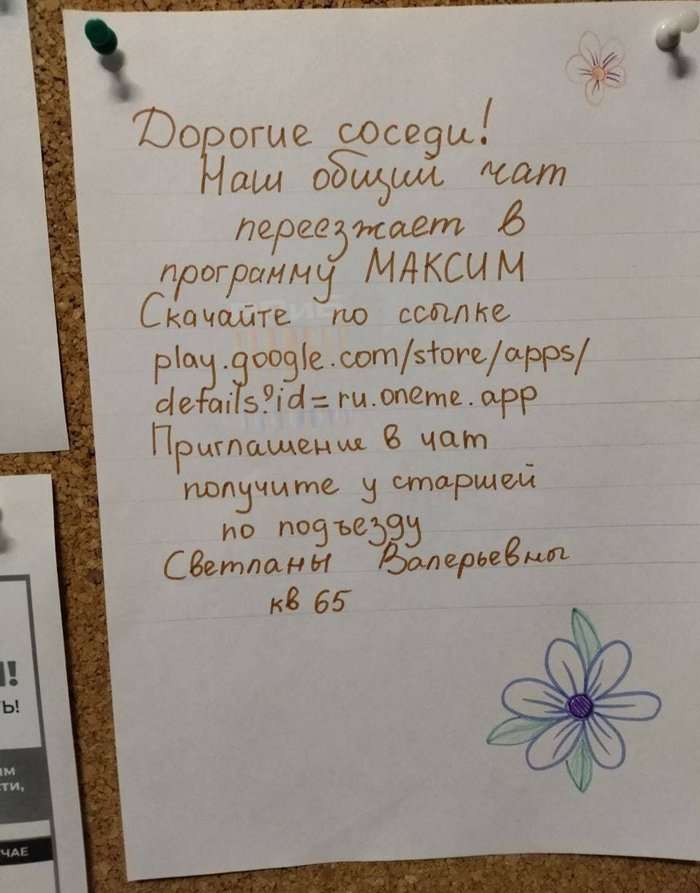 Дорогие соседи!
Наш общий чат
переезжает в
программу МАКСИМ
Скачайте по ссылке
play.google.com/store/apps/
details?id=ru.oneme.app
Приглашение в чат
получите у старшей
по подъезду
Светланы Валерьевны
кв 65
Ь!
ЧАЕ